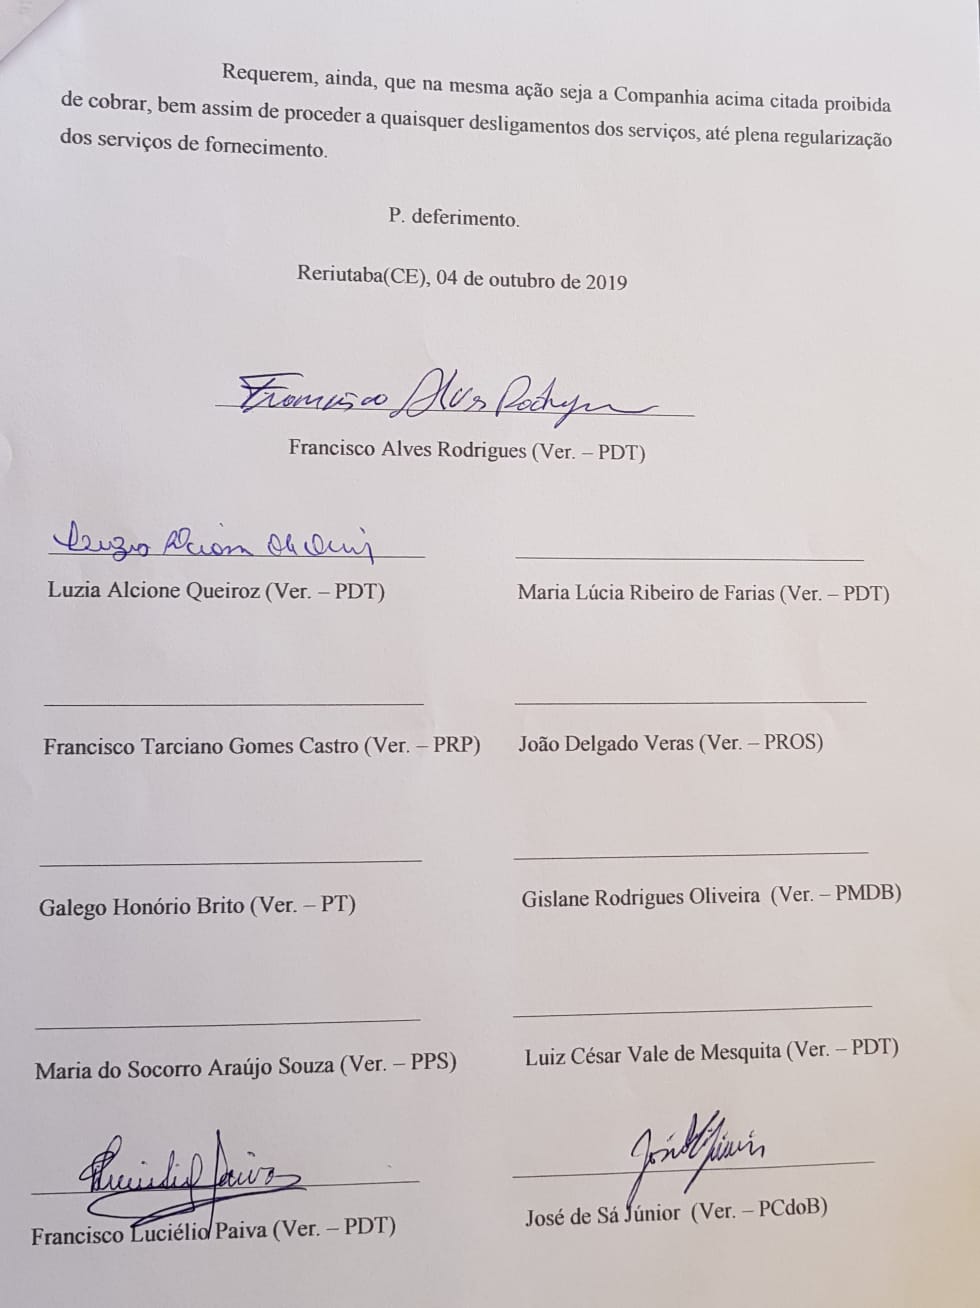 Requerem, ainda, que na mesma ação seja a Companhia acima citada proibida
de cobrar, bem assim de proceder a quaisquer desligamentos dos serviços, até plena regularização
dos serviços de fornecimento.
P. deferimento.
Reriutaba(CE), 04 de outubro de 2019
Francisco Alves Rodrigues
Francisco Alves Rodrigues (Ver. – PDT)
Luzia Alcione
Luzia Alcione Queiroz (Ver. – PDT)
Maria Lúcia Ribeiro de Farias (Ver. – PDT)
Francisco Tarciano Gomes Castro (Ver. – PRP)
João Delgado Veras (Ver. – PROS)
Galego Honório Brito (Ver. – PT)
Gislane Rodrigues Oliveira (Ver. – PMDB)
Maria do Socorro Araújo Souza (Ver. – PPS)
Luiz César Vale de Mesquita (Ver. – PDT)
Francisco Luciélio Paiva (Ver. – PDT)
José de Sá Júnior (Ver. – PCdoB)